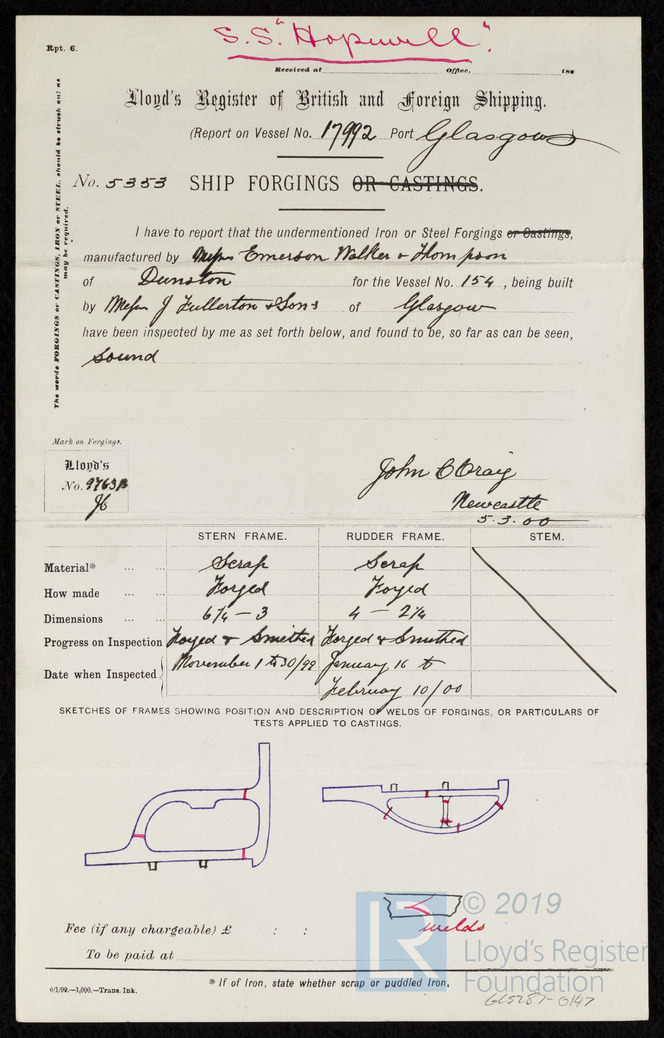 S.S. "Hopewell".
Rpt. 6.
Received at Office, 189
Lloyd's Register of British and Foreign Shipping.
(Report on Vessel No. 17992 Port Glasgow
No. 5353 SHIP FORGINGS OR CASTINGS.
The words FORGINGS or CASTINGS, IRON or STEEL, should be struck out as
may be required.
I have to report that the undermentioned Iron or Steel Forgings or Castings,
manufactured by Messrs Emerson Walker & Thompson
of Dunston for the Vessel No. 154, being built
by Messrs J Fullerton & Sons of Glasgow
have been inspected by me as set forth below, and found to be, so far as can be seen,
Sound
Mark on Forgings.
Lloyd's
No. 9763B
John C Craig
Newcastle
5.3.00
STERN FRAME. RUDDER FRAME. STEM.
Material* Scrap Scrap
How made Forged Forged
Dimensions 6¼ – 3 4 – 2¼
Progress on Inspection Forged & Smithed Forged & Smithed
Date when Inspected November 1 to 30/99 January 16 to
February 10/00
SKETCHES OF FRAMES SHOWING POSITION AND DESCRIPTION OF WELDS OF FORGINGS, OR PARTICULARS OF
TESTS APPLIED TO CASTINGS.
welds
Fee (if any chargeable) £ : :
To be paid at
* If of Iron, state whether scrap or puddled Iron.
6/1/99.—1,000.—Trans. Ink.
LR © 2019
Lloyd's Register
Foundation